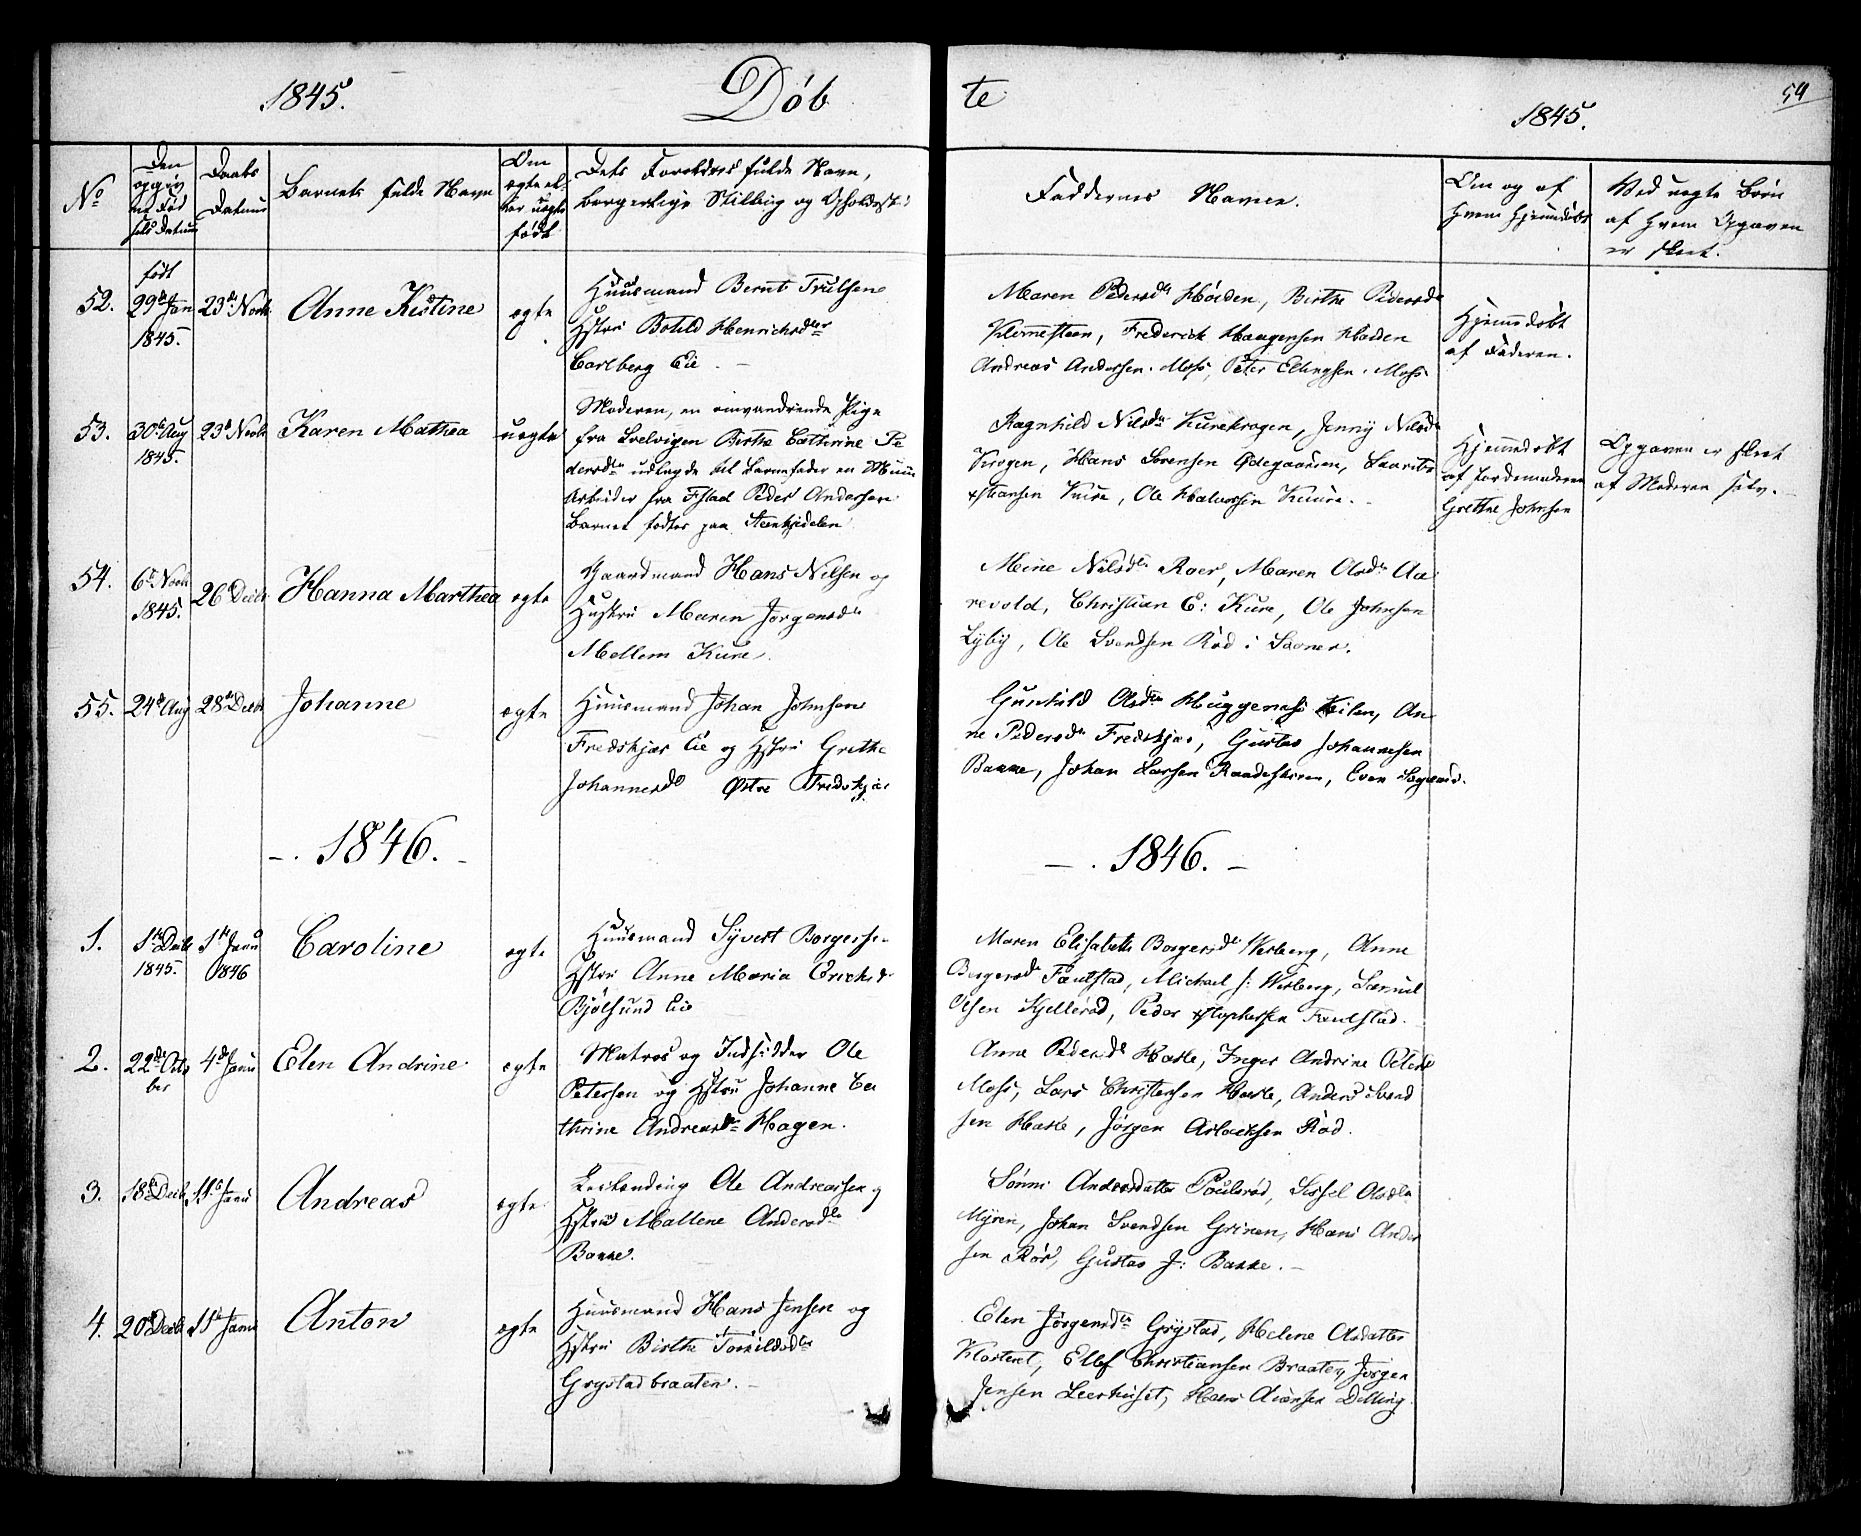 1845.
Døb
te
1845.
54
No
Den opgivne Fødselsdatum
Daabs Datum
Barnets fulde Navn
Om ægte eller uægte født
Dets Forældres fulde Navn,
borgerlige Stilling og Opholdsst:
Faddernes Navne.
Om og af Hvem Hjemmedøbt
Ved uægte Børn
af Hvem Opgaven
er skeet.
52.
født
29de Jan
1845.
23de Novb.
Anne Kistine
ægte
Huusmand Bernt Trulsen
Hstru Botild Henrichsdtr
Carlberg Eie.
Maren Pedersdtr Høiden, Birthe Pedersdtr
Klommesteen, Frederick Haagensen Høiden
Andreas Andersen Moss, Peter Ellingsen Moss
Hjemmedøbt
af Faderen.
53.
30te Aug
1845.
23de Novb.
Karen Mathea
uægte
Moderen, en omvandrende Pige
fra Svelvigen Birthe Cathrine Pe
dersdtr udlagde til Barnefader en
Arbeider fra Peder Andersen
Barnet fødtes paa
Ragnhild Nilsdtr Kurekrogen, Jenny Nilsdtr
Krogen, Hans Sørensen Ødegaarden, Laurits
xstiansen Kure, Ole Halvorsen Kuure.
Hjemmedøbt
af Jordemoderen
Grethe Johnsen
Opgaven er skeet
af Moderen selv.
54.
6te Novb
1845.
26de Decbr
Hanna Marthea
ægte
Gaardmand Hans Nilsen og
Hustru Maren Jørgensdtr
Mellem Kure.
Mine Nilsdtr Roer, Maren Olsdtr Aa
revold, Christian E: Kure, Ole Johnsen
Lyby, Ole Svendsen Rød i Saaner.
55.
24de Aug
28de Decbr
Johanne
ægte
Huusmand Johan Johnsen
Fredskjær Eie og Hstru Grethe
Johannesdtr Østre Fredskjær
Gunhild Olsdtr Huggenæs Eilen, An
ne Pedersdtr Fredskjær, Gustav Johannesen
Bakke, Johan Larsen, Even
1846.
1846.
1.
1ste Decbr
1845.
1ste Janu
1846
Caroline
ægte
Huusmand Syvert Borgerse-
Hstru Anne Maria Erichsd
Bjølsund Eie
Maren Elisabeth Borgersdtr Werberg, Anne
Borgersdtr Faulstad, Michael J: Werberg, Samuel
Olsen Kjellerød, Peder xstophersen Faulstad.
2.
22de Octo
ber
4de Janu
Elen Andrine
ægte
Matros og Indsidder Ole
Petersen og Hstru Johanne Ca
thrine Andreasdtr Hagen.
Anne Pedersdtr Hasle, Inger Andrine Peters
Moss, Lars Christensen Hasle, Anders Svend
sen Hasle, Jørgen Aslacksen Rød.
3.
18de Decb
11te Janu
Andreas
ægte
Ole Andreasen og
Hstru Mallene Andersdtr
Bakke.
Andersdatter Poulerød, Sissel Olsdtr
Myren, Johan Svendsen Grinen, Hans Ander
sen Rør, Gustav J: Bakke.
4.
20de Decbr
11te Janu
Anton
ægte
Huusmand Hans Jensen og
Hstru Birthe Torkildsdtr
Grystadbraaten.
Elen Jørgensdtr Grystad, Helene Olsdatter
Klosteret, Ellef Christiansen Braaten, Jørgen
Jensen Leerhuset, Hans Dilling.